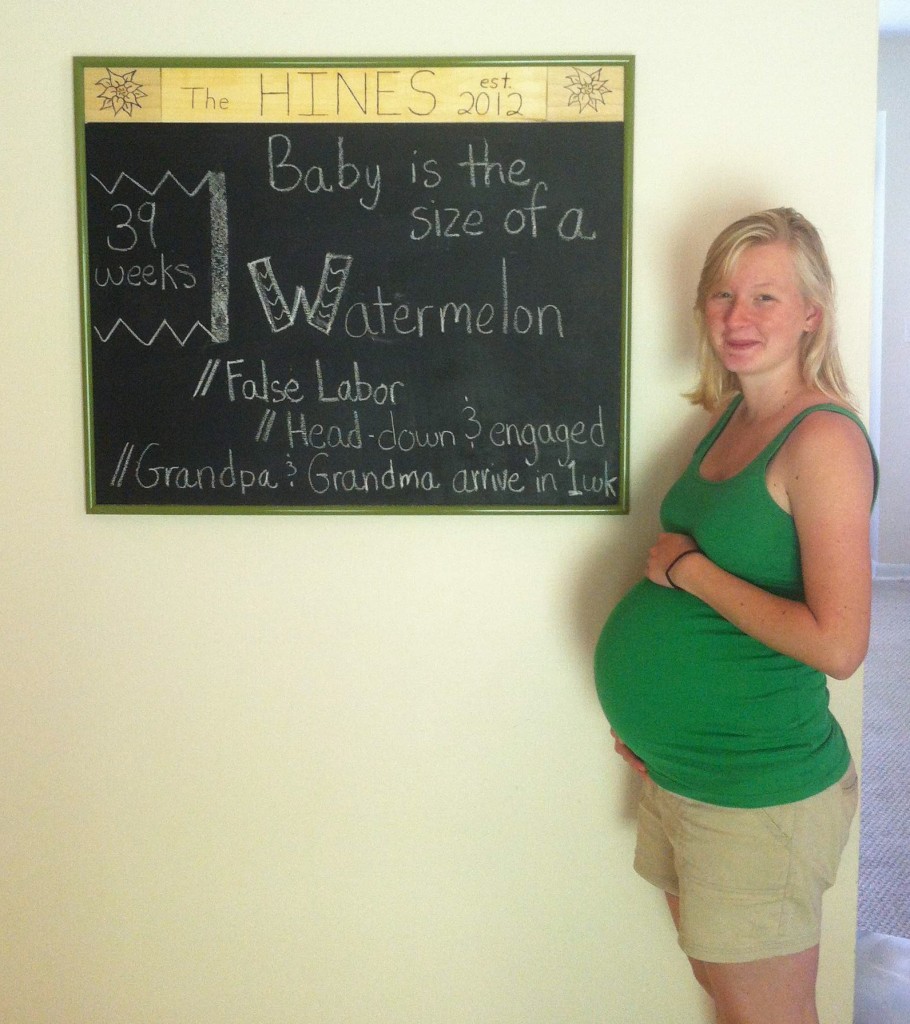 The HINES est. 2012
Baby is the
size of a
39
weeks
Watermelon
// False Labor
// Head-down & engaged
// Grandpa & Grandma arrive in 1wk